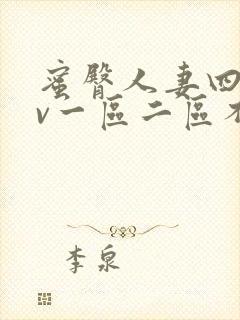 蜜臀人妻四
v一區二區不
李泉